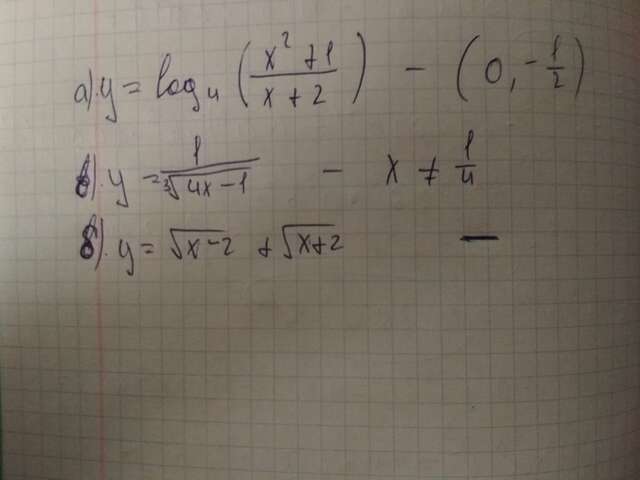 а). y = log₄ ((x² + 1)/(x + 2)) — (0, -1/2)
в). y = 1/∛(4x - 1) — x ≠ 1/4
б). y = √(x-2) + √(x+2) —